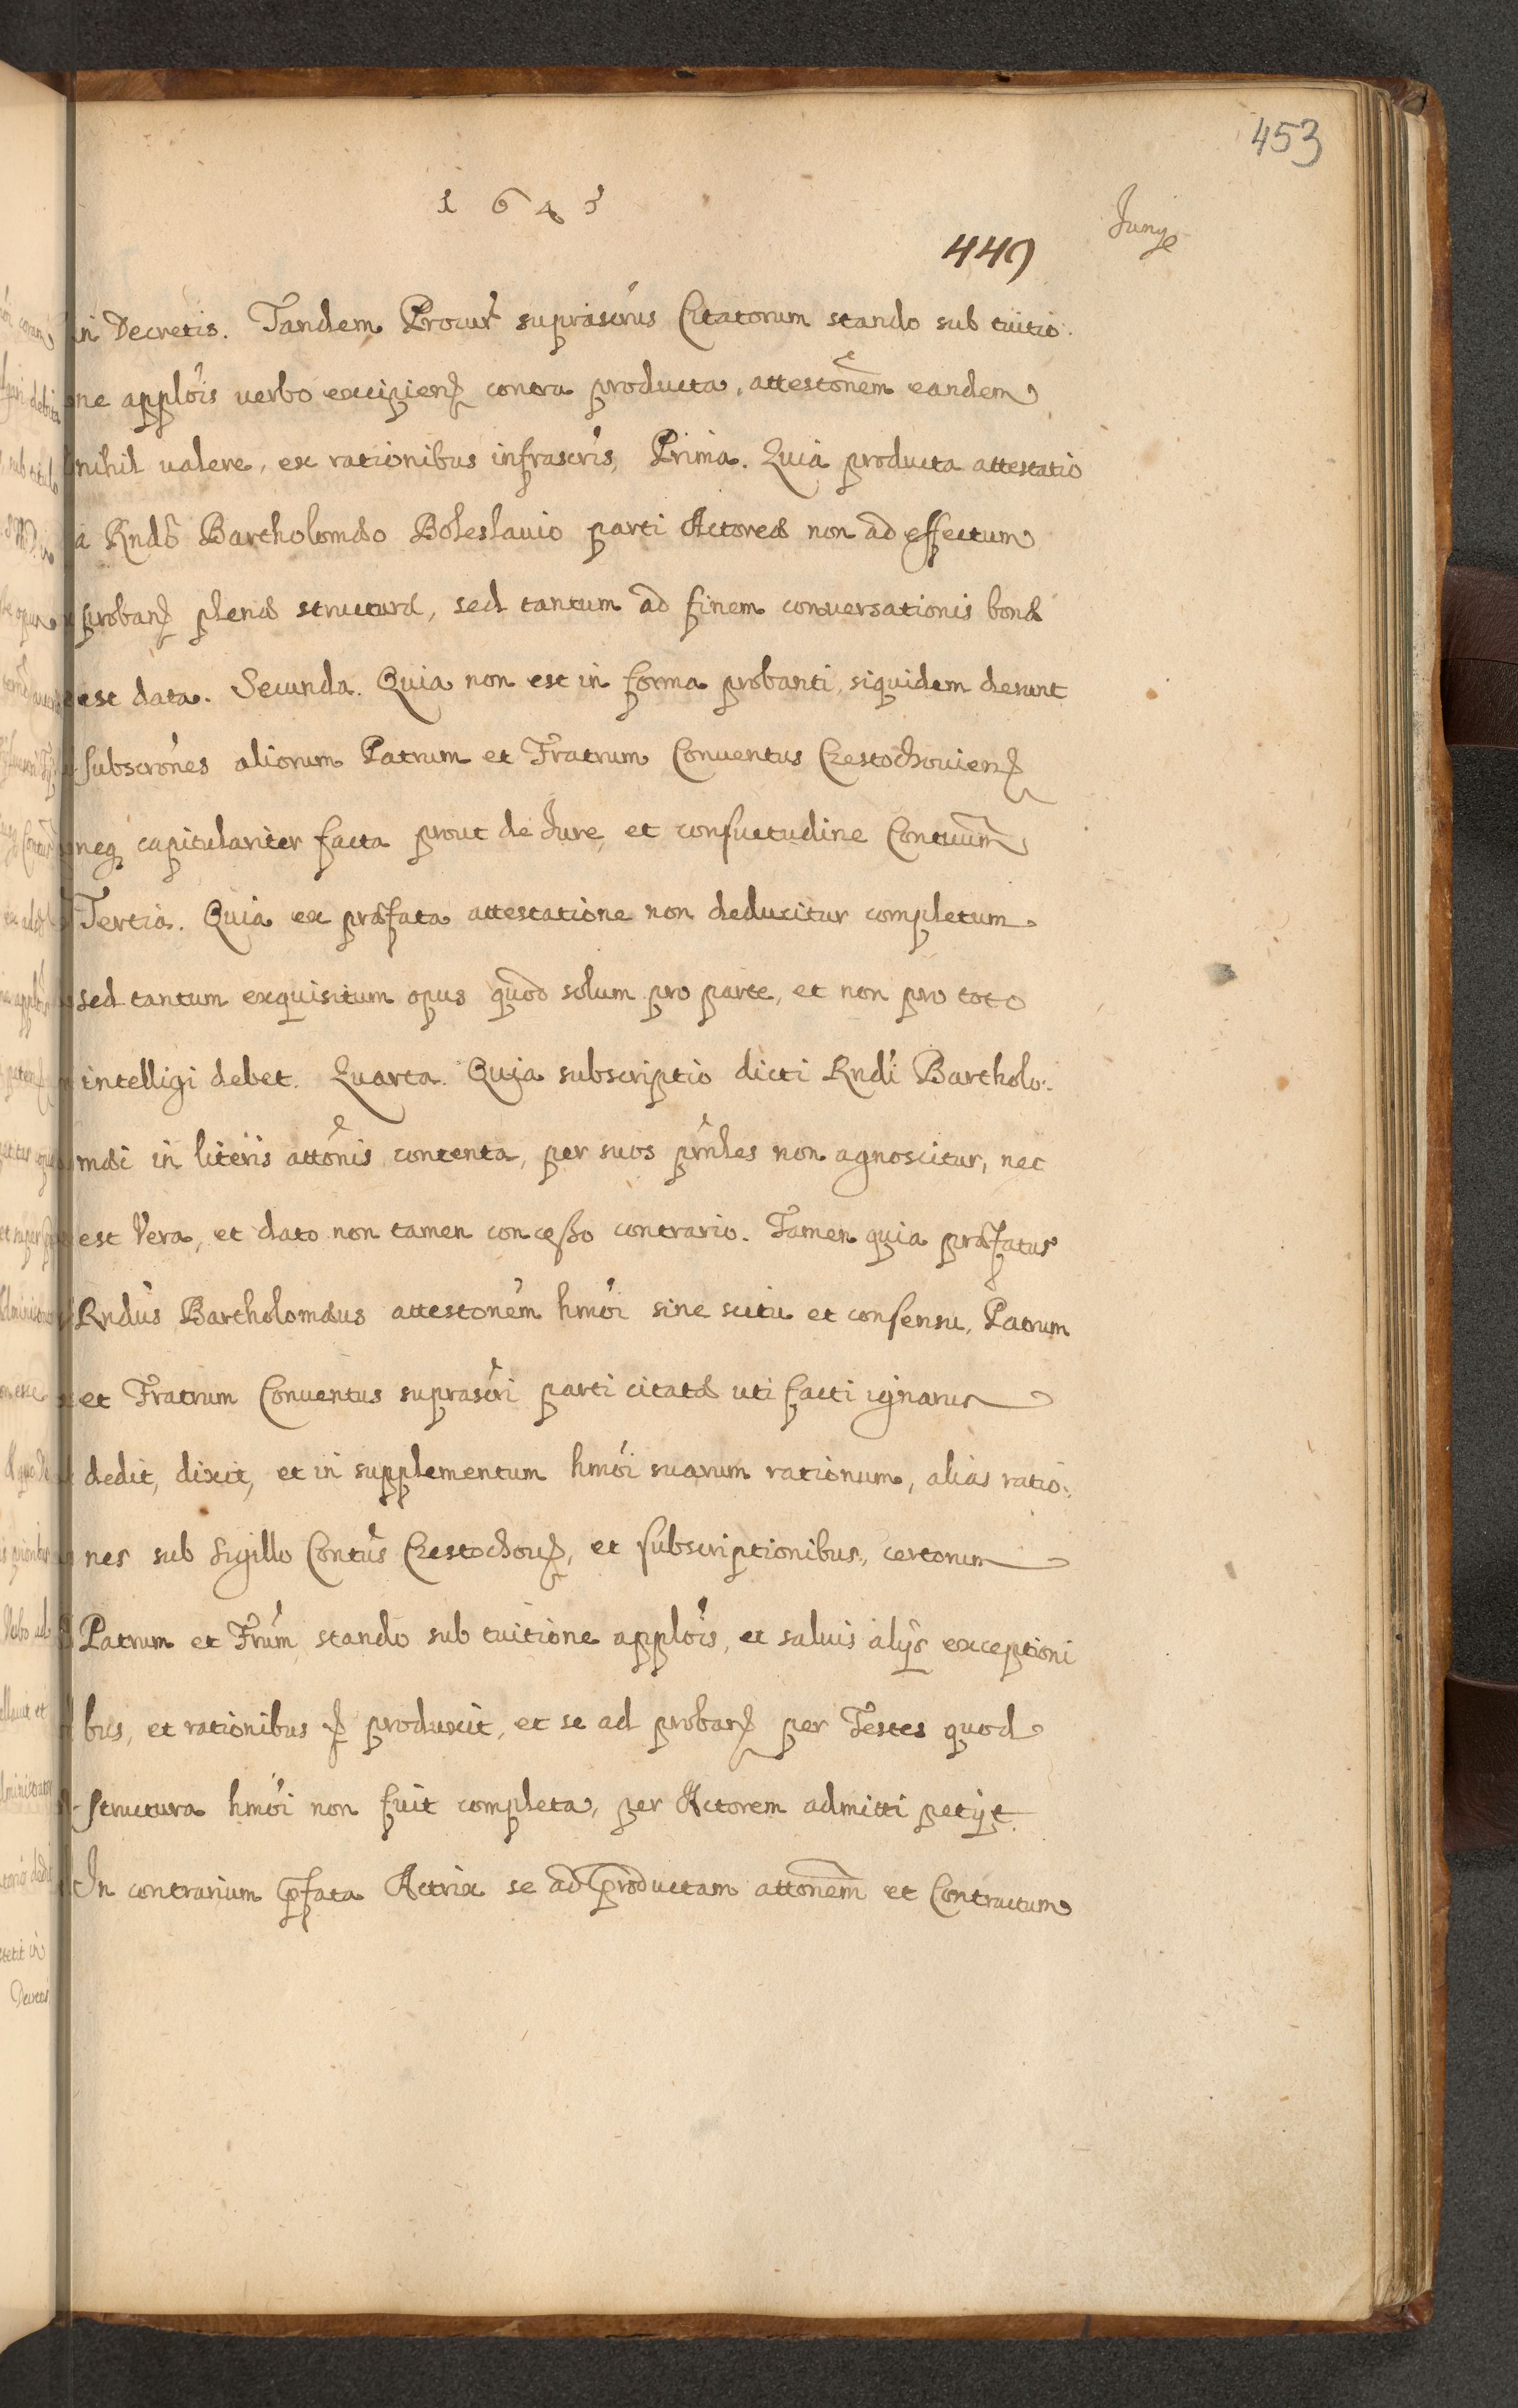 453
1643
Junÿ
449
in Decretis. Tandem Procur̃ suprascr̃us Citatorum stando sub tuitio
ne applõis verbo excipien̄ contra producta, attestõnem eandem
nihil valere, ex rationibus infrascr̃is, Prima. Quia producta attestatio
a Rndõ Bartholomæo Boleslavio parti Actoreæ non ad effectum
proban̄ plenæ structuræ, sed tantum ad finem conversationis bonæ
est data. Secunda. Quia non est in forma probanti, siquidem desunt
subscrõnes aliorum Patrum et Fratrum Conventus Czestochovien̄
neq capitulariter facta prout de Jure, et consuetudine Contuum̃
Tertia. Quia ex præfata attestatione non deducitur completum
sed tantum exquisitum opus quod solum pro parte, et non pro toto
intelligi debet. Quarta. Quia subscriptio dicti Rndi Bartholo:
mæi in literis attõnis contenta, per suos pñles non agnoscitur, nec
est Vera, et dato non tamen concesso contrario. Tamen quia præfatus
Rndus Bartholomæus attestonẽm hmõi sine scitu et consensu, Patrum
et Fratrum Conventus suprascr̃i parti citatæ uti facti ignarus
dedit, dixit, et in supplementum hmõi suarum rationum, alias ratio:
nes sub Sigillo Contũs Czestochov̄, et subscriptionibus, certorum
Patrum et Frum̃ stando sub tuitione applõis, et salvis alijs exceptioni
bus, et rationibus produxit, et se ad proban̄ per Testes quod
structura hmõi non fuit completa, per Actorem admitti petijt.
In contrarium pfata Actrix se ad productam attonẽm et Contractum